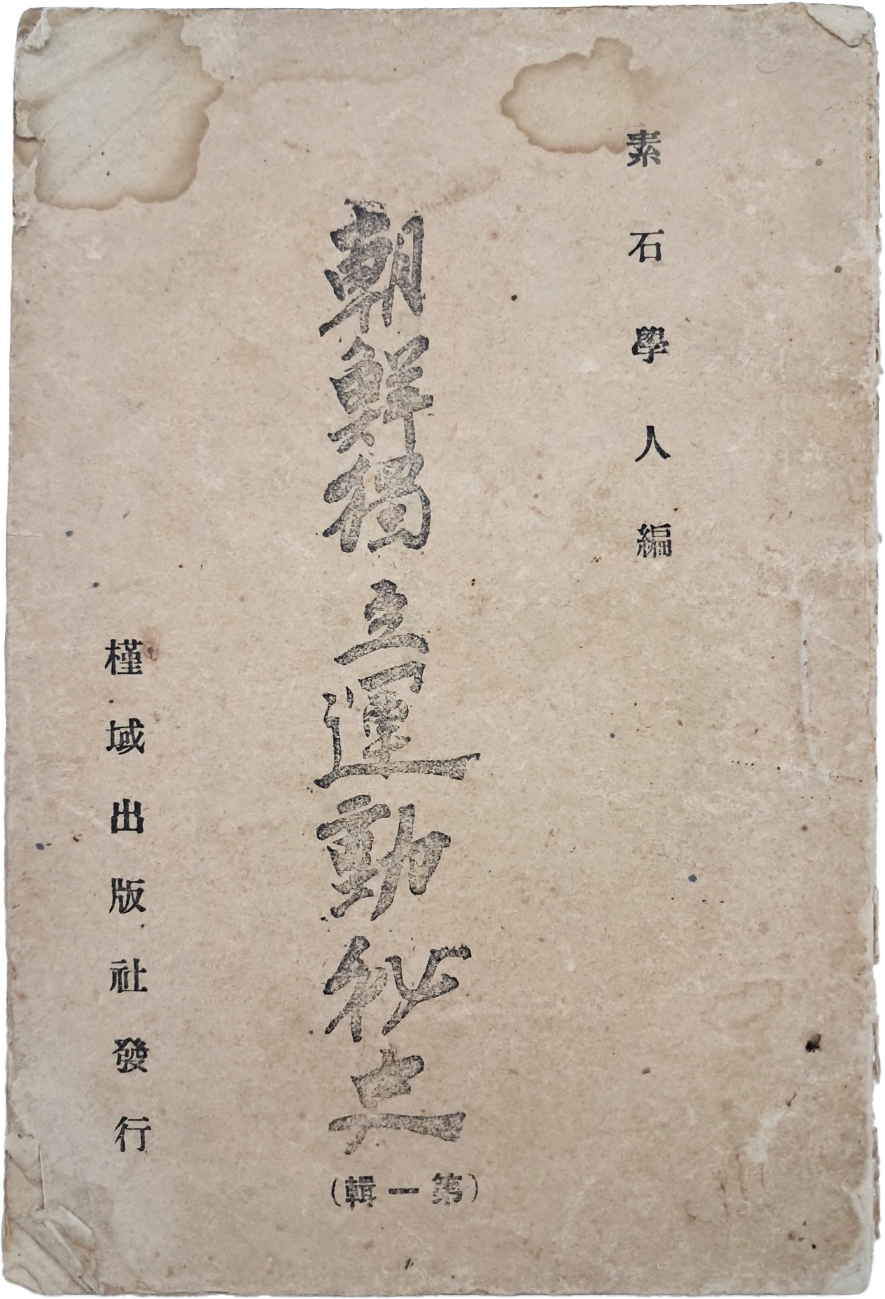 素石學人編
朝鮮獨立運動秘史
(第一輯)
槿域出版社發行